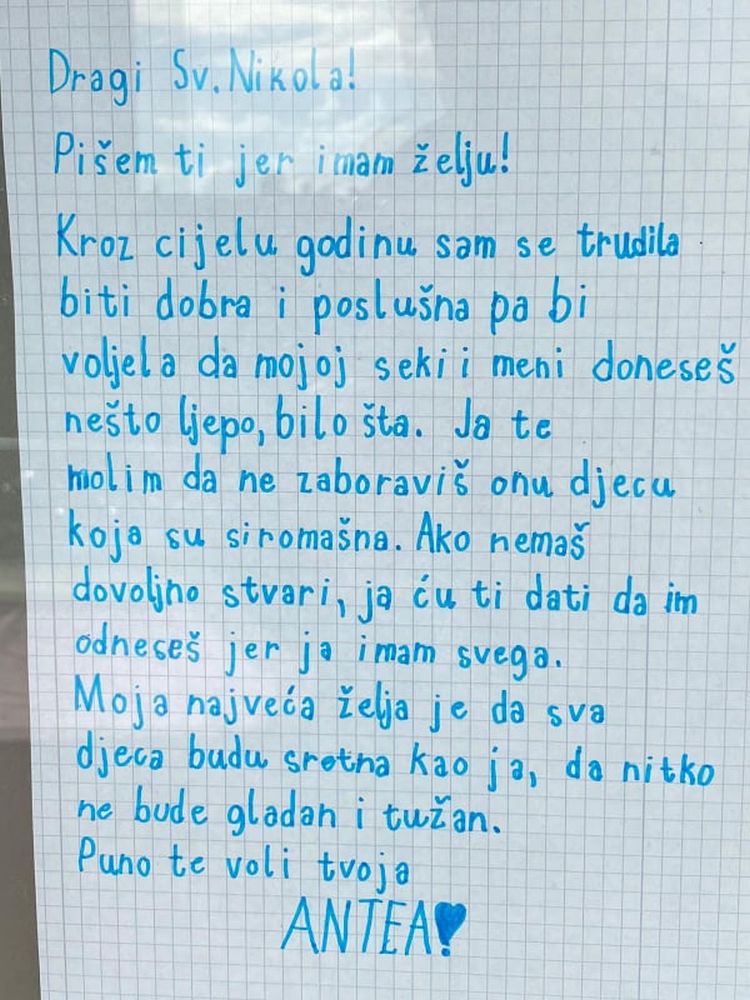 Dragi Sv. Nikola!
Pišem ti jer imam želju!
Kroz cijelu godinu sam se trudila
biti dobra i poslušna pa bi
voljela da mojoj seki i meni doneseš
nešto ljepo, bilo šta. Ja te
molim da ne zaboraviš onu djecu
koja su siromašna. Ako nemaš
dovoljno stvari, ja ću ti dati da im
odneseš jer ja imam svega.
Moja najveća želja je da sva
djeca budu sretna kao ja, da nitko
ne bude gladan i tužan.
Puno te voli tvoja
ANTEA!